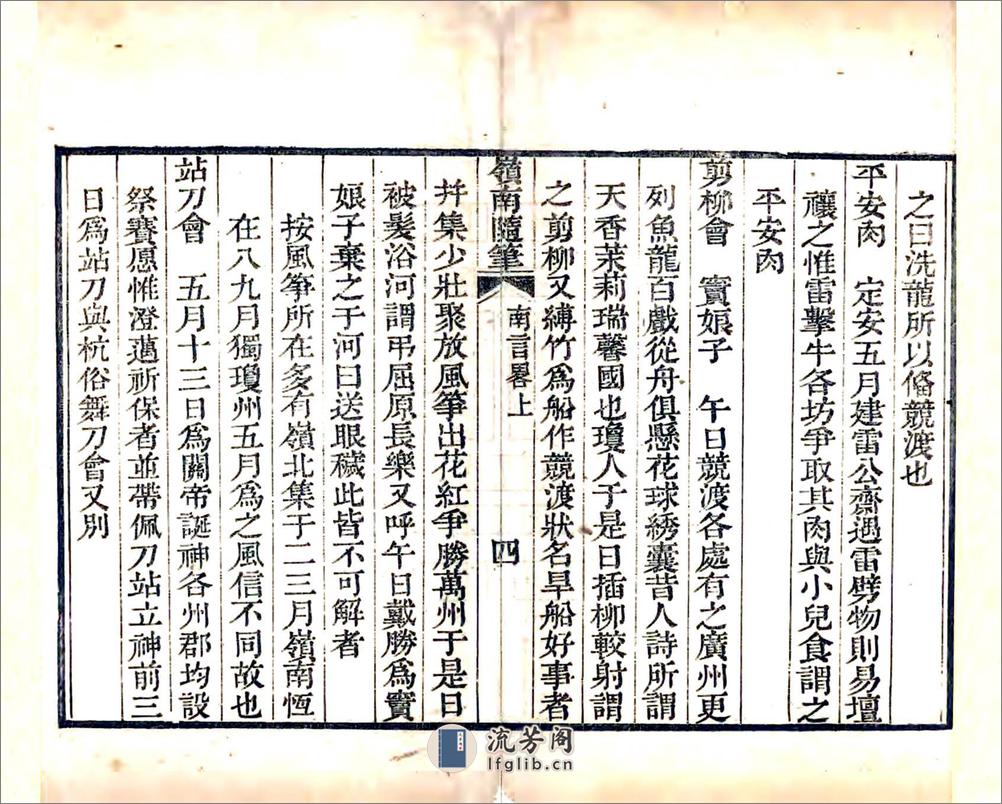 之曰洗龍所以俻競渡也
平安肉　定安五月建雷公齋遇雷劈物則易壇
禳之惟雷擊牛各坊爭取其肉與小兒食謂之
平安肉
剪柳會　竇娘子　午日競渡各處有之廣州更
列魚龍百戲從舟俱懸花球綉囊昔人詩所謂
天香茉莉瑞馨國也瓊人于是日插柳較射謂
之剪柳又縛竹爲船作競渡狀名旱船好事者
嶺南隨筆　南言畧上　四
并集少壯聚放風箏出花紅爭勝萬州于是日
被髮浴河謂弔屈原長樂又呼午日戴勝爲竇
娘子棄之于河曰送眼穢此皆不可解者
按風箏所在多有嶺北集于二三月嶺南恆
在八九月獨瓊州五月爲之風信不同故也
站刀會　五月十三日爲關帝誕神各州郡均設
祭賽愿惟澄邁祈保者並帶佩刀站立神前三
日爲站刀與杭俗舞刀會又別
流芳阁
lfglib.cn